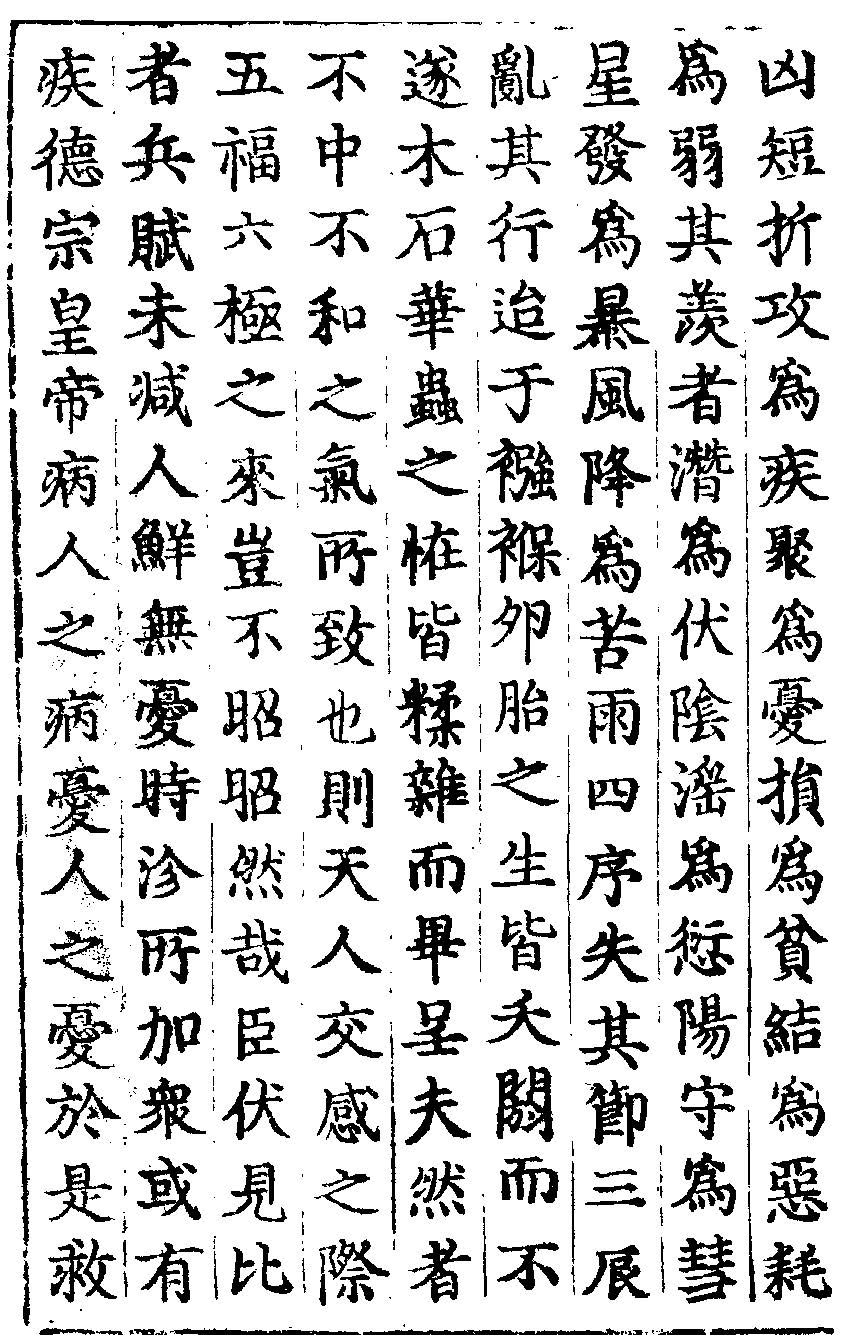 凶短折攻為疾聚為憂損為貧結為惡耗
為弱其羨者潛為伏陰滛為愆陽守為彗
星發為暴風降為苦雨四序失其節三辰
亂其行迨于襁褓夘胎之生皆夭閼而不
遂木石華蟲之恠皆糅雜而畢呈夫然者
不中不和之氣所致也則天人交感之際
五福六極之來豈不昭昭然哉臣伏見比
者兵賦未减人鮮無憂時沴所加衆或有
疾德宗皇帝病人之病憂人之憂於是救